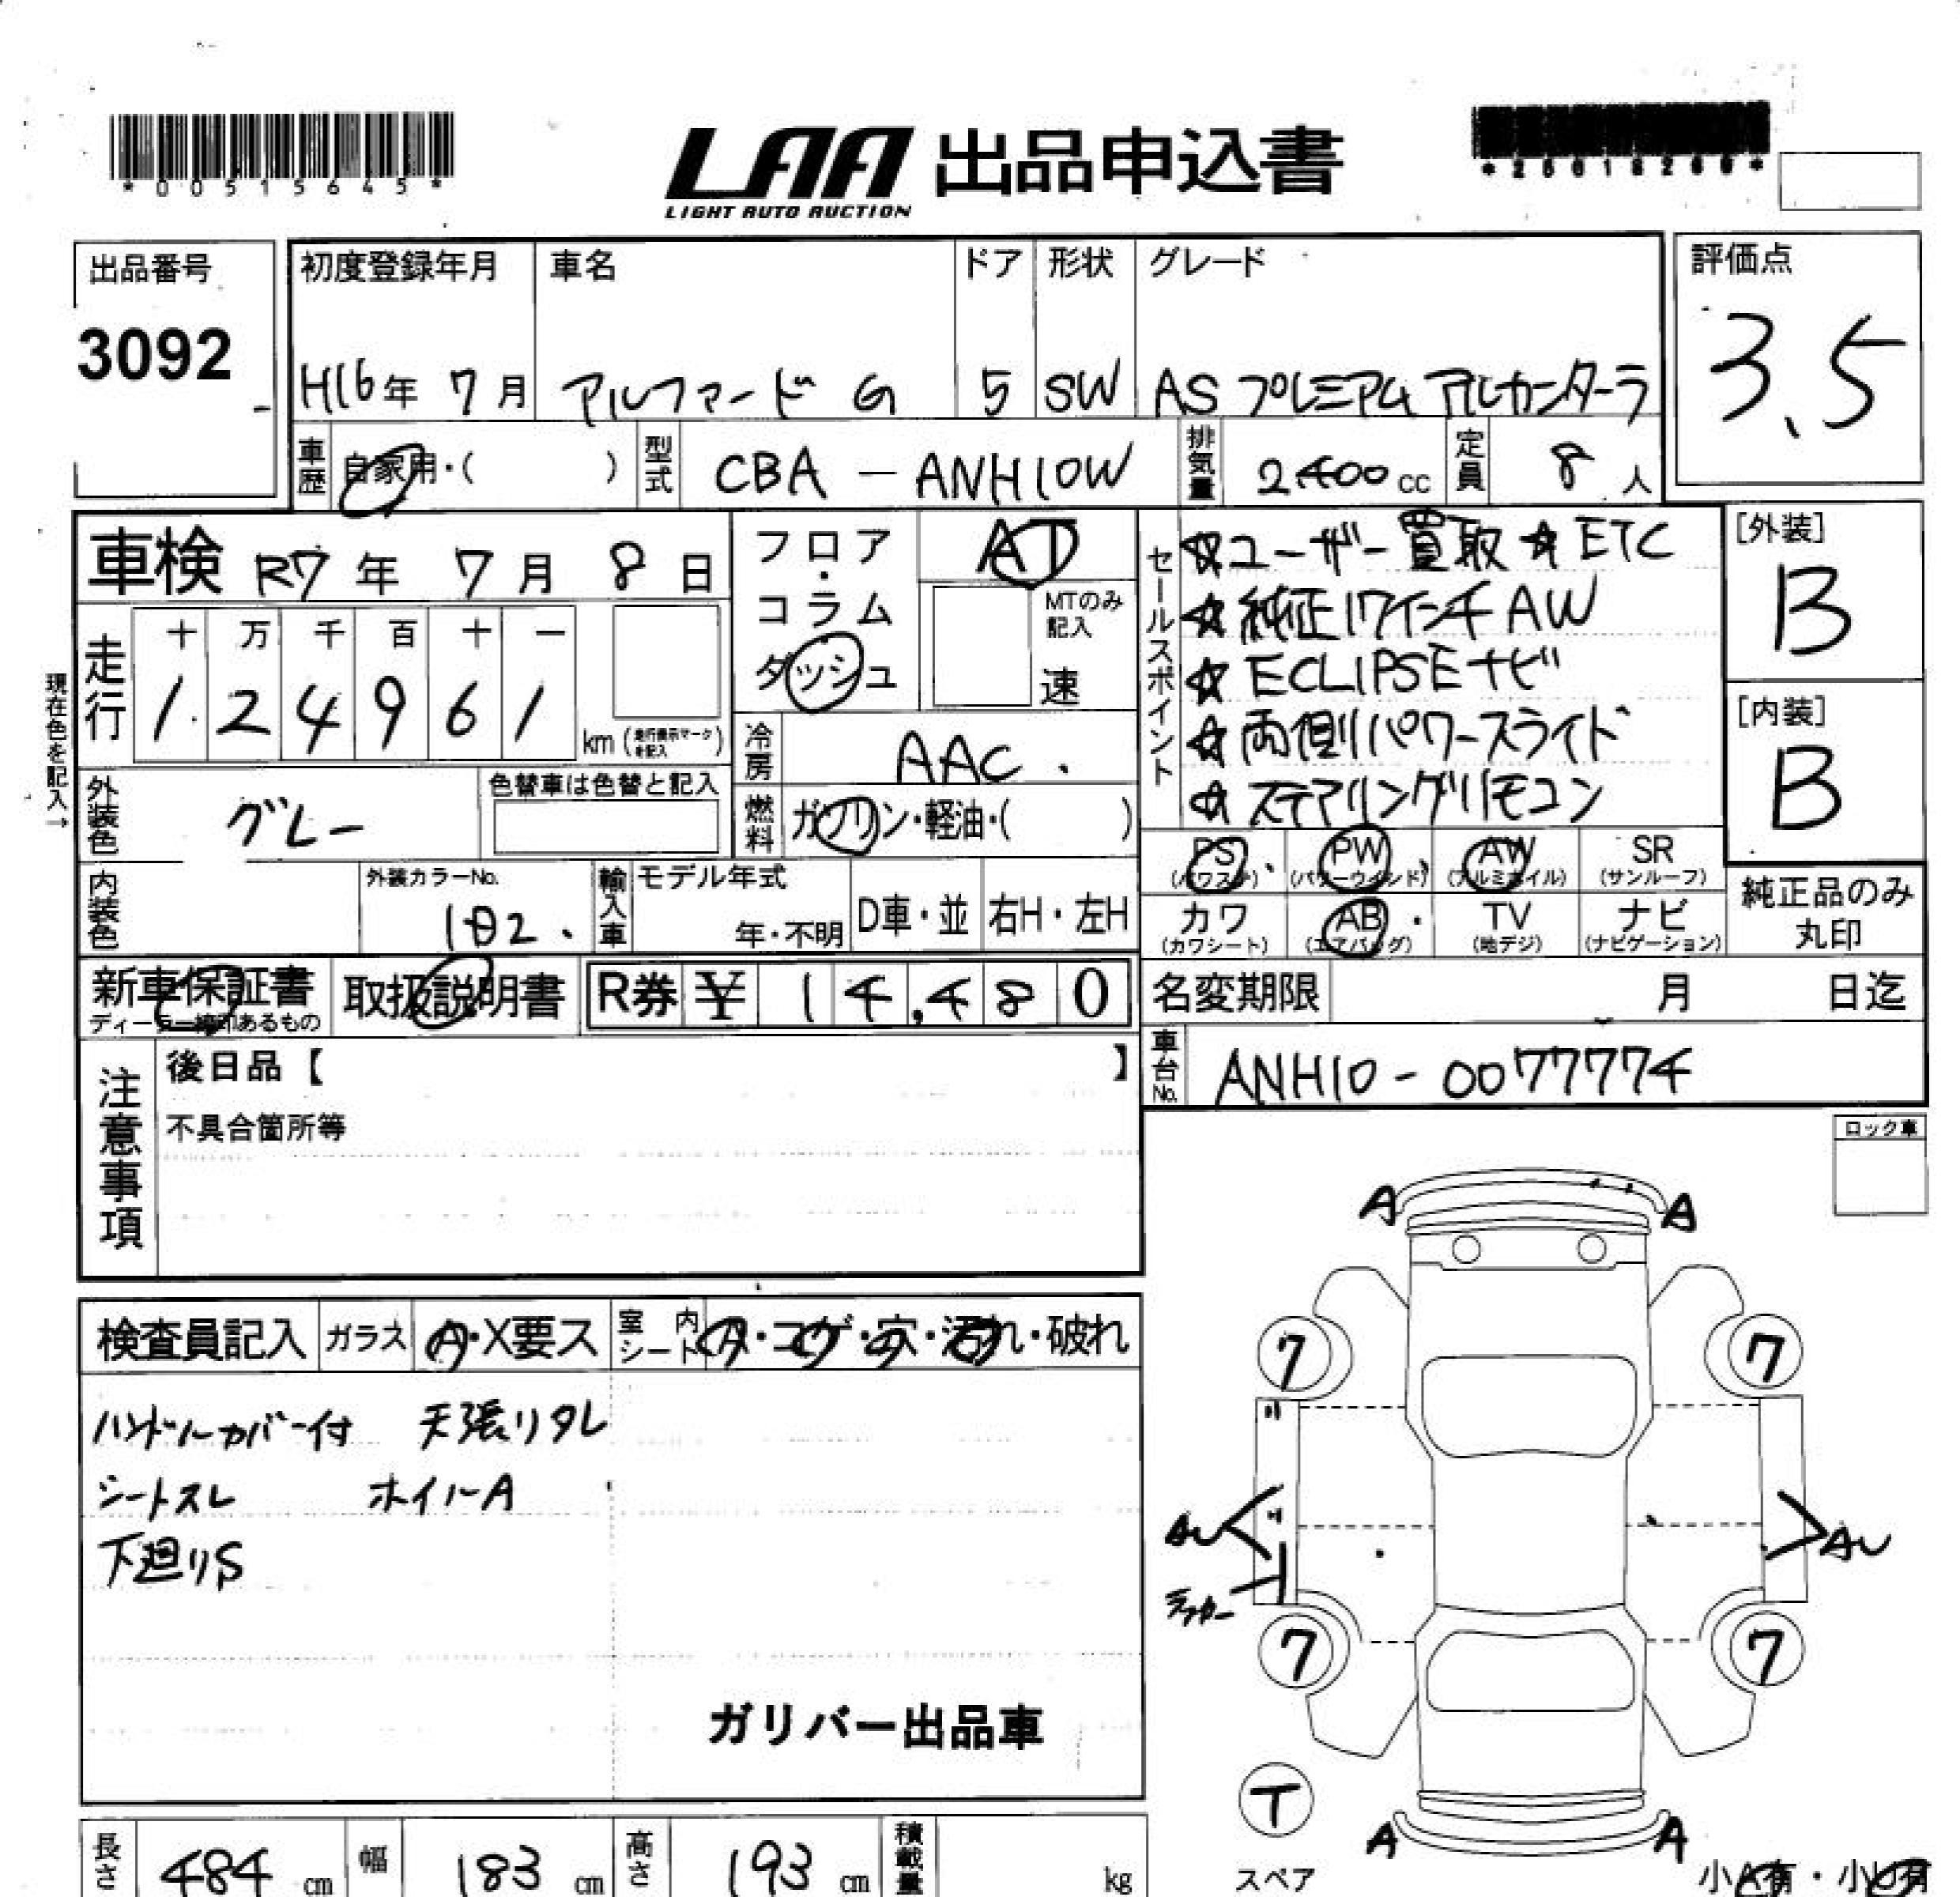 *00515645*
LAA 出品申込書
LIGHT AUTO AUCTION
出品番号
3092
初度登録年月
H16年 7月
車名
アルファード G
ドア
5
形状
SW
グレード
AS プレミアム アルカンターラ
評価点
3.5
車歴 自家用・( )
型式 CBA - ANH10W
排気量 2400 cc
定員 8 人
車検 R7年 7月 8日
フロア・コラム
ダッシュ
AT
MTのみ記入
速
セールスポイント
☆ユーザー買取 ☆ETC
☆純正17インチAW
☆ECLIPSEナビ
☆両側パワースライド
☆ステアリングリモコン
[外装]
B
[内装]
B
走行
十 万 千 百 十 一
1 2 4 9 6 1
km (走行表示マークを記入)
現在色を記入→
冷房 AAC
外装色 グレー
色替車は色替と記入
燃料 ガソリン・軽油・( )
PS (パワステ)
PW (パワーウインド)
AW (アルミホイル)
SR (サンルーフ)
カワ (カワシート)
AB (エアバッグ)
TV (地デジ)
ナビ (ナビゲーション)
純正品のみ丸印
内装色
外装カラーNo.
1D2
輸入車
モデル年式
年・不明
D車・並
右H・左H
新車保証書
取扱説明書
R券 ¥ 14,480
名変期限 月 日迄
車台No. ANH10-0077774
注意事項
後日品【 】
不具合箇所等
ロック車
検査員記入
ガラス A・X要ス
室内シート ス・コゲ・穴・汚れ・破れ
ハンドルカバー付 天張りタレ
シートスレ ホイルA
下廻りS
ガリバー出品車
A A
7 7
AU AU
7 7
T
スペア
A A
小A有・小U有
長さ 484 cm
幅 183 cm
高さ 193 cm
積載量 kg